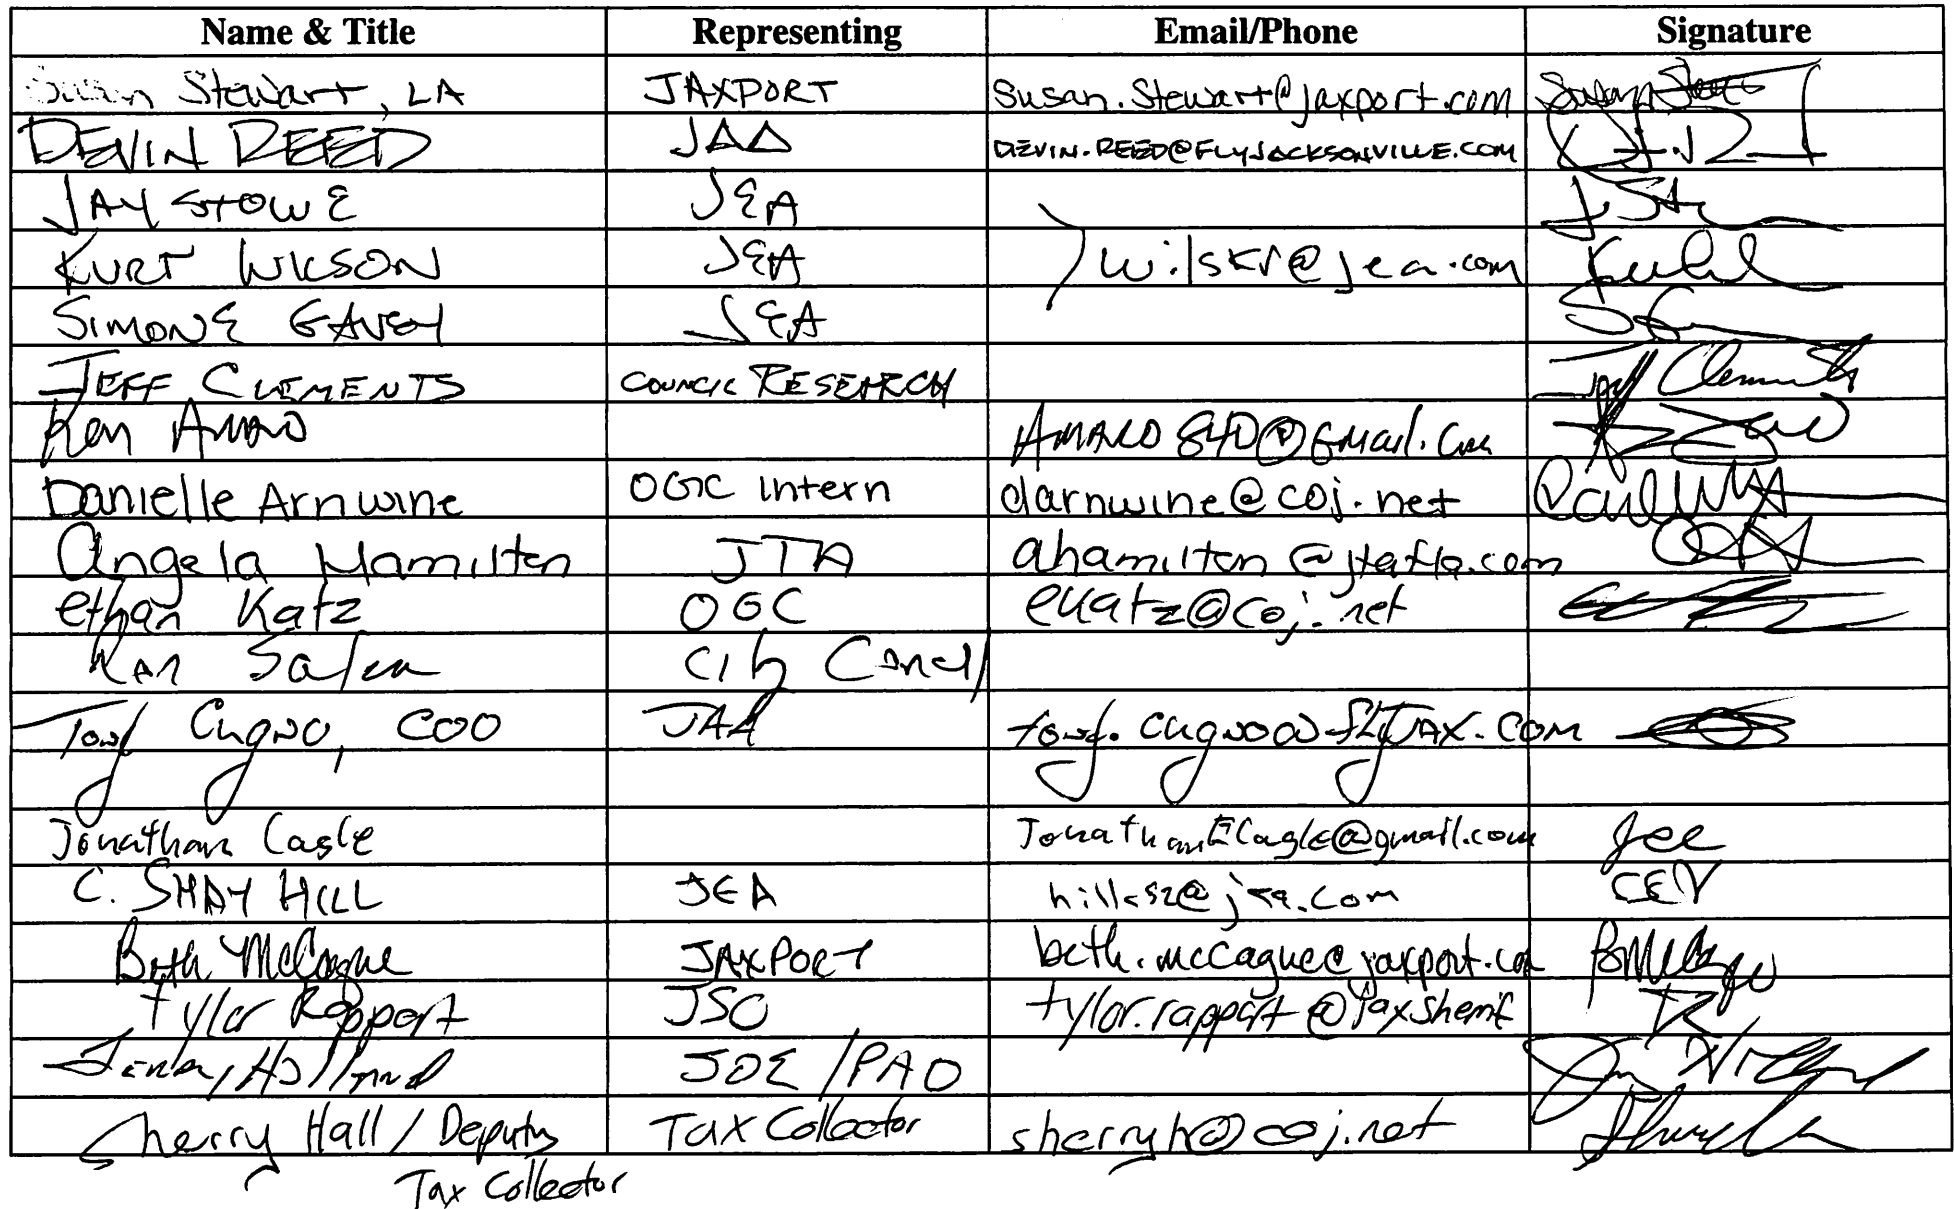 Name & Title Representing Email/Phone Signature
Susan Stewart, LA JAXPORT Susan.Stewart@jaxport.com
DEVIN REED JAA DEVIN.REED@FLYJACKSONVILLE.COM
JAY STOWE JEA
KURT WILSON JEA wilskr@jea.com
SIMONE GAVEY JEA
JEFF CLEMENTS COUNCIL RESEARCH Jeff Clements
Ken AMARO AMARO840@GMail.Com
Danielle Arnwine OGC Intern darnwine@coj.net
Angela Hamilton JTA ahamilton@jtafla.com
Ethan Katz OGC ekatz@coj.net
Ron Salem City Council
Tony Cugno, COO JAA tony.cugno@flyJAX.COM
Jonathan Cagle JonathanECagle@gmail.com
C. SHAY HILL JEA hillcs2@jea.com
Beth McCague JAXPORT beth.mccague@jaxport.com
Tylor Rapport JSO tylor.rapport@jaxsheriff
Holland PAO
Sherry Hall / Deputy Tax Collector sherryh@coj.net
Tax Collector